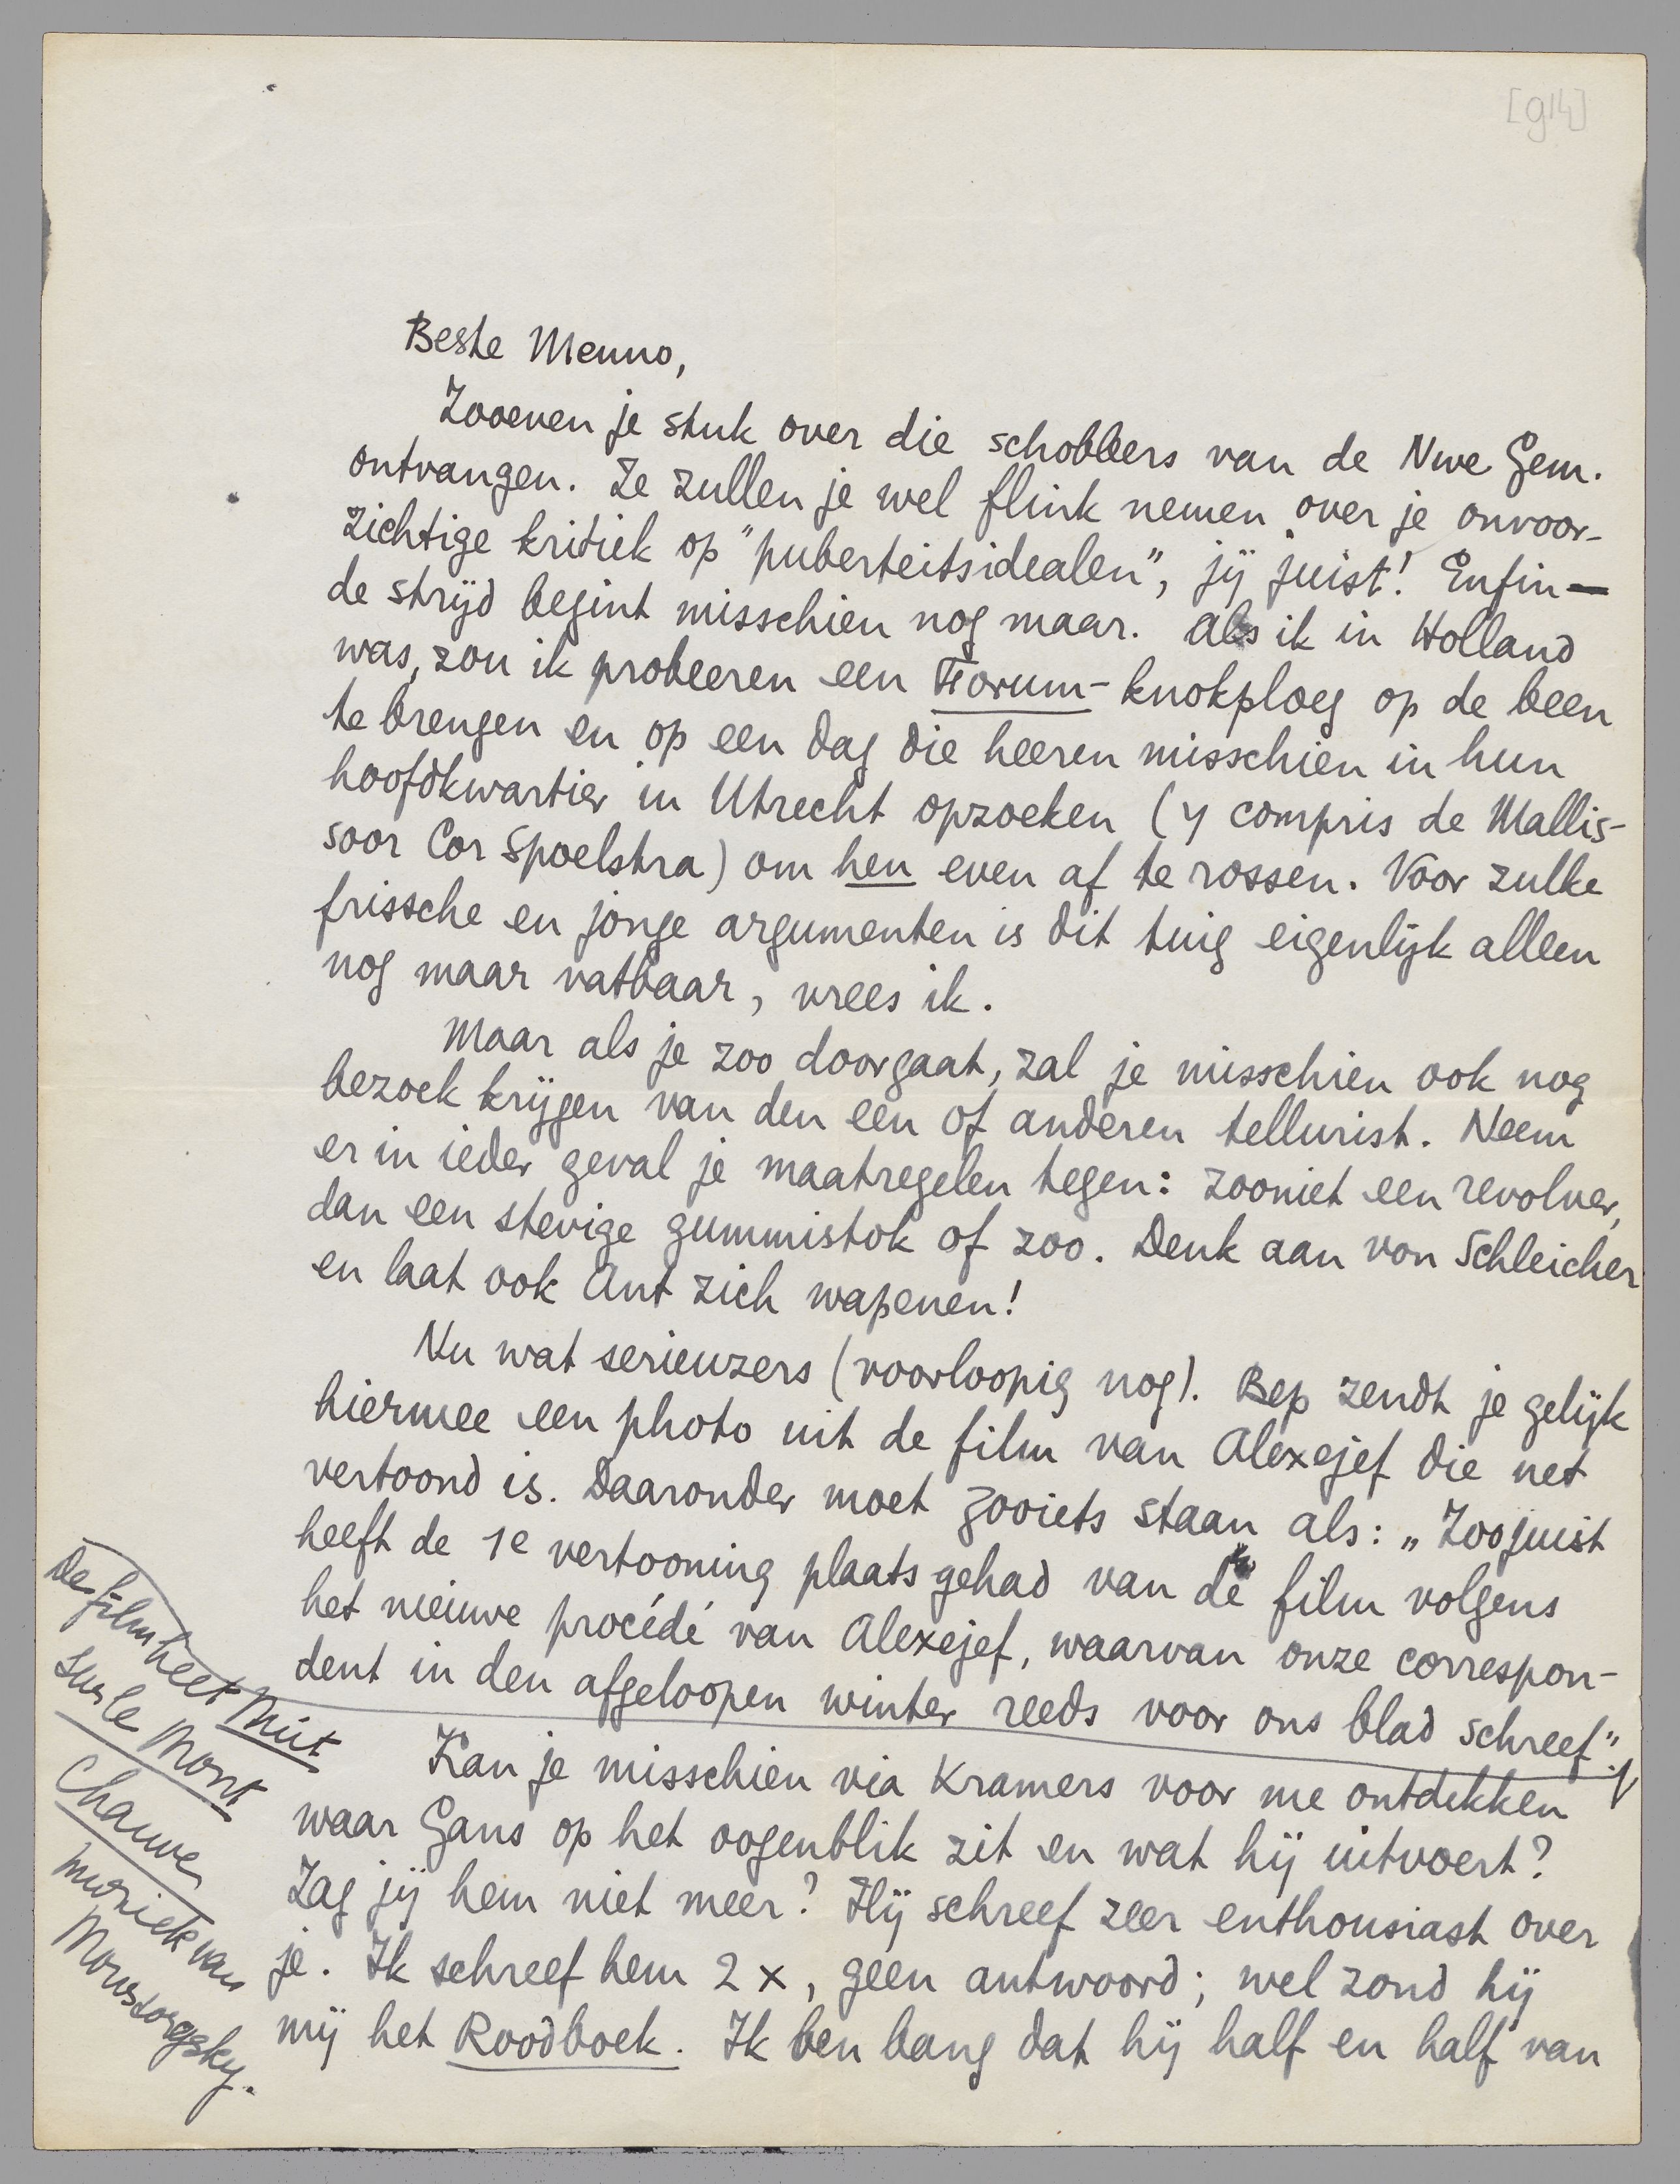 [914]
Beste Menno,
Zooeven je stuk over die schobbers van de Nwe Gem.
ontvangen. Ze zullen je wel flink nemen over je onvoor-
zichtige kritiek op "puberteitsidealen", jij juist! Enfin —
de strijd begint misschien nog maar. Als ik in Holland
was, zou ik probeeren een Forum-knokploeg op de been
te brengen en op een dag die heeren misschien in hun
hoofdkwartier in Utrecht opzoeken (y compris de Mallis-
soor Cor Spoelstra) om hen even af te rossen. Voor zulke
frissche en jonge argumenten is dit tuig eigenlijk alleen
nog maar vatbaar, vrees ik.
Maar als je zoo doorgaat, zal je misschien ook nog
bezoek krijgen van den een of anderen tellurist. Neem
er in ieder geval je maatregelen tegen: zooniet een revolver,
dan een stevige gummistok of zoo. Denk aan von Schleicher
en laat ook Ant zich wapenen!
Nu wat serieuzers (voorloopig nog). Bep zendt je gelijk
hiermee een photo uit de film van Alexejef die net
vertoond is. Daaronder moet zooiets staan als: „Zoojuist
heeft de 1e vertooning plaats gehad van de film volgens
het nieuwe procédé van Alexejef, waarvan onze correspon-
dent in den afgeloopen winter reeds voor ons blad schreef".
De film heet Nuit
sur le Mont
Chauve,
muziek van
Moussorgsky.
Kan je misschien via Kramers voor me ontdekken
waar Gans op het oogenblik zit en wat hij uitvoert?
Zag jij hem niet meer? Hij schreef zeer enthousiast over
je. Ik schreef hem 2 x, geen antwoord; wel zond hij
mij het Roodboek. Ik ben bang dat hij half en half van